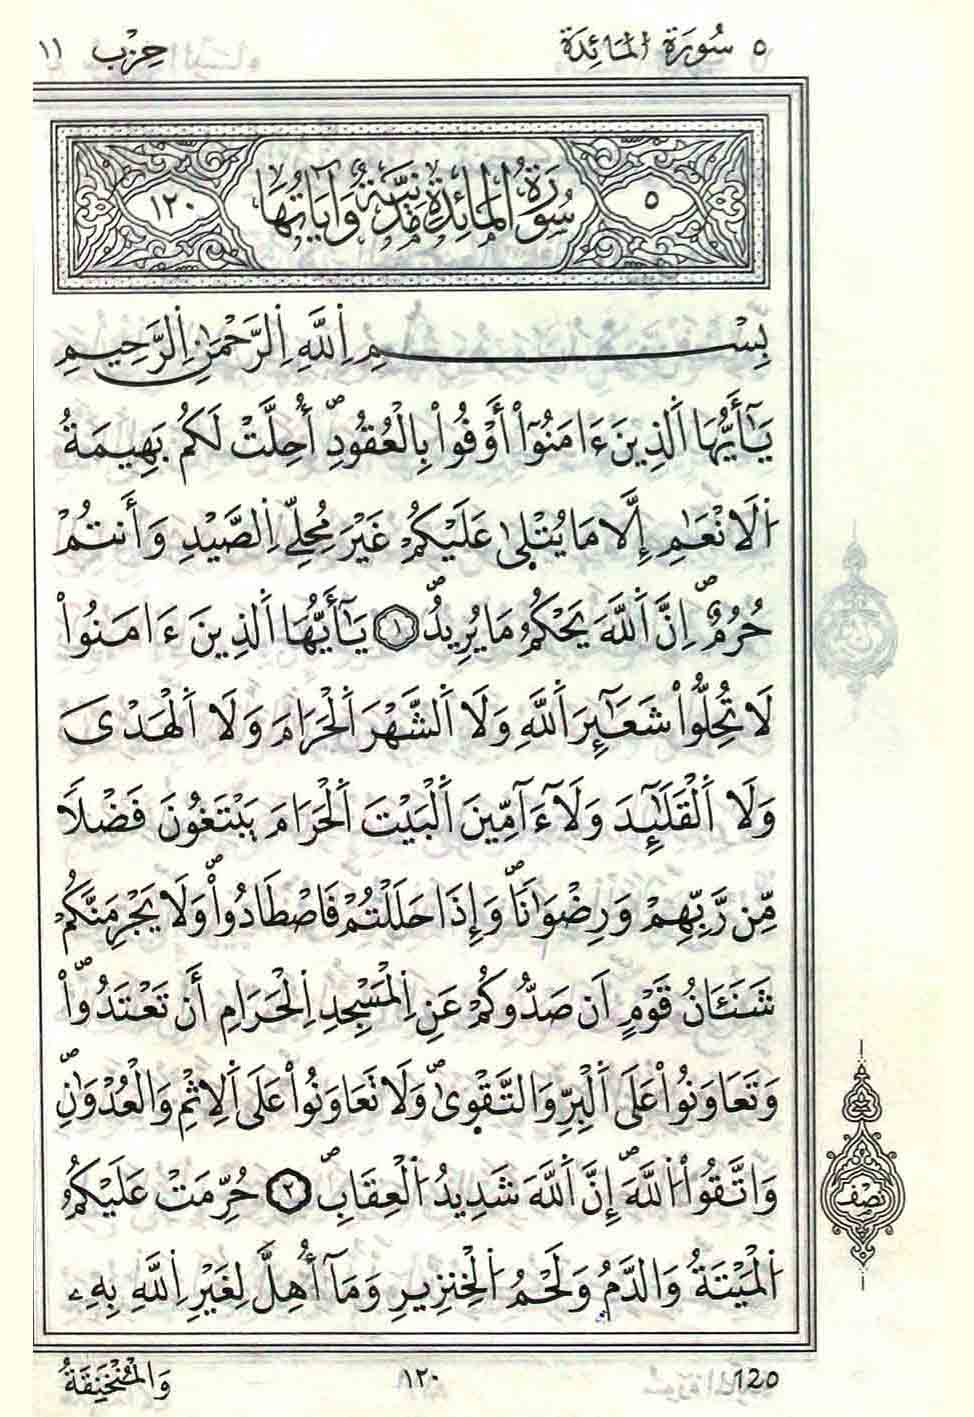 ٥ سُورَة المَائِدَة
حِزْب ١١
٥
سُورَةُ المَائِدَةِ مَدَنِيَّةٌ وَآيَاتُهَا
١٢٠
بِسْمِ اِ۬للَّهِ اِ۬لرَّحْمَٰنِ اِ۬لرَّحِيمِ
يَٰٓأَيُّهَا اَ۬لذِينَ ءَامَنُوٓاْ أَوْفُواْ بِالْعُقُودِۖ أُحِلَّتْ لَكُم بَهِيمَةُ
اُ۬لَانْعَٰمِ إِلَّا مَا يُتْل۪ىٰ عَلَيْكُمْ غَيْرَ مُحِلِّے اِ۬لصَّيْدِ وَأَنتُمْ
حُرُمٌۖ اِنَّ اَ۬للَّهَ يَحْكُمُ مَا يُرِيدُۖ ١ يَٰٓأَيُّهَا اَ۬لذِينَ ءَامَنُواْ
لَا تُحِلُّواْ شَعَٰٓئِرَ اَ۬للَّهِ وَلَا اَ۬لشَّهْرَ اَ۬لْحَرَامَ وَلَا اَ۬لْهَدْىَ
وَلَا اَ۬لْقَلَٰٓئِدَ وَلَآ ءَآمِّينَ اَ۬لْبَيْتَ اَ۬لْحَرَامَ يَبْتَغُونَ فَضْلًا
مِّن رَّبِّهِمْ وَرِضْوَٰنًاۖ وَإِذَا حَلَلْتُمْ فَاصْطَادُواْۖ وَلَا يَجْرِمَنَّكُمْ
شَنَـَٔانُ قَوْمٍ اَن صَدُّوكُمْ عَنِ اِ۬لْمَسْجِدِ اِ۬لْحَرَامِ أَن تَعْتَدُواْۖ
وَتَعَاوَنُواْ عَلَى اَ۬لْبِرِّ وَالتَّقْو۪ىٰۖ وَلَا تَعَاوَنُواْ عَلَى اَ۬لِاثْمِ وَالْعُدْوَٰنِۖ
وَاتَّقُواْ اُ۬للَّهَۖ إِنَّ اَ۬للَّهَ شَدِيدُ اُ۬لْعِقَابِۖ ٢ حُرِّمَتْ عَلَيْكُمُ
اُ۬لْمَيْتَةُ وَالدَّمُ وَلَحْمُ اُ۬لْخِنزِيرِ وَمَآ أُهِلَّ لِغَيْرِ اِ۬للَّهِ بِهِۦ
نصف
120
١٢٠
وَالْمُنْخَنِقَةُ